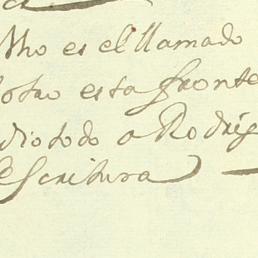 Mho es el llamado
otro esta fronte
dio todo a Rodrig
escritura